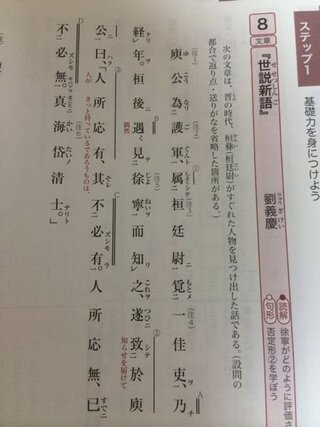 ステップ1
基礎力を身につけよう
8 文章 『世説新語』 劉義慶
読解 徐寧がどのように評価さ
句形 否定形②を学ぼう
次の文章は、晋の時代、桓彝(桓廷尉)がすぐれた人物を見つけ出した話である。(設問の
都合で返り点・送りがなを省略した箇所がある。)
庾公為護軍、属桓廷尉覓一佳吏、乃
経年。桓後遇見徐寧而知之、遂致於庾
偶然
知らせを届けて
公曰、「人所応有、其不必有。人所応無、已
人が きっと持っているであろうものは、
不必無。真海岱清士。」